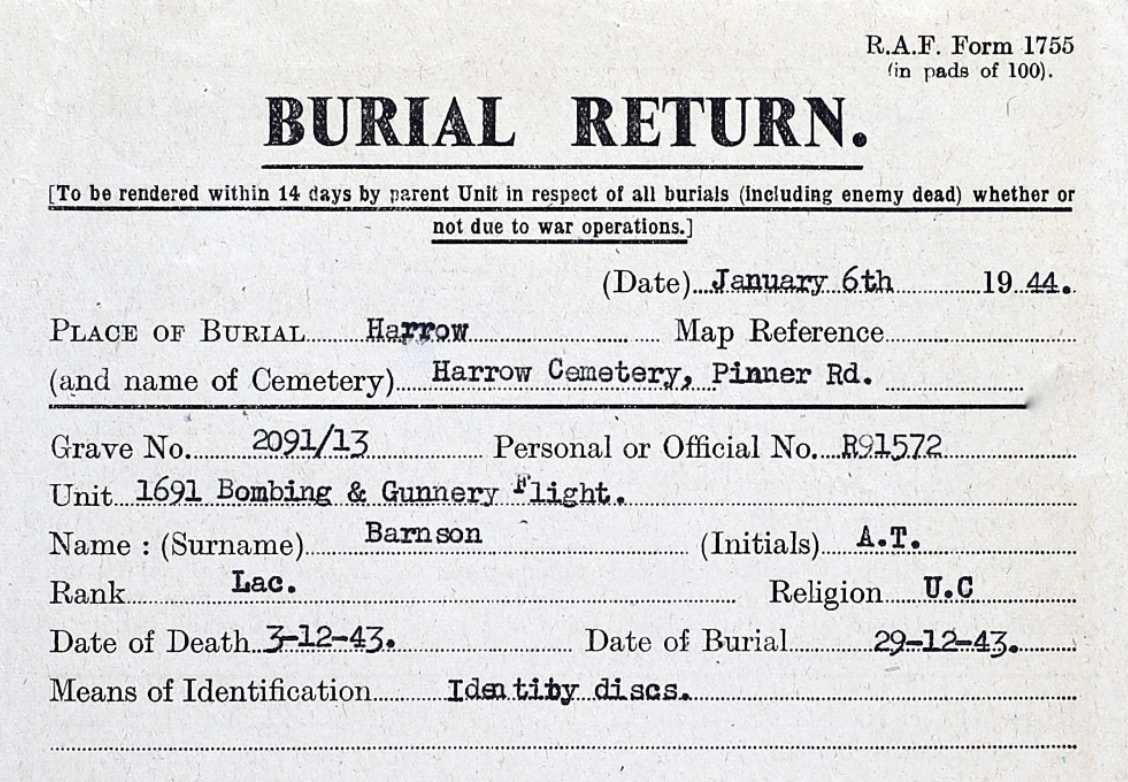 R.A.F. Form 1755
(in pads of 100).
BURIAL RETURN.
[To be rendered within 14 days by parent Unit in respect of all burials (including enemy dead) whether or
not due to war operations.]
(Date) January 6th 19 44.
PLACE OF BURIAL Harrow Map Reference
(and name of Cemetery) Harrow Cemetery, Pinner Rd.
Grave No. 2091/13 Personal or Official No. R91572
Unit 1691 Bombing & Gunnery Flight.
Name : (Surname) Barnson (Initials) A.T.
Rank Lac. Religion U.C
Date of Death 3-12-43. Date of Burial 29-12-43.
Means of Identification Identity discs.